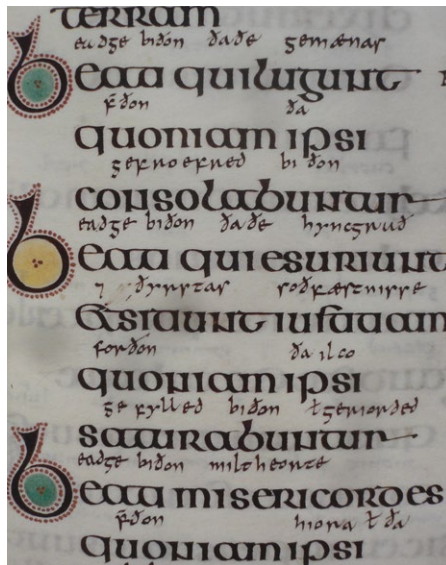 terram
eadge biðon ða ðe gemænas
Beati qui lugunt
f̄ðon ða
quoniam ipsi
gefroefred biðon
consolabuntur
eadge biðon ða ðe hyncgrað
Beati qui esuriunt
⁊ ðyrstas soðfæstnisse
et sitiunt iustitiam
forðon ða ilco
quoniam ipsi
gefylled biðon ł geriorded
saturabuntur
eadge biðon miltheorte
Beati misericordes
f̄ðon hiora ł ða
quoniam ipsi